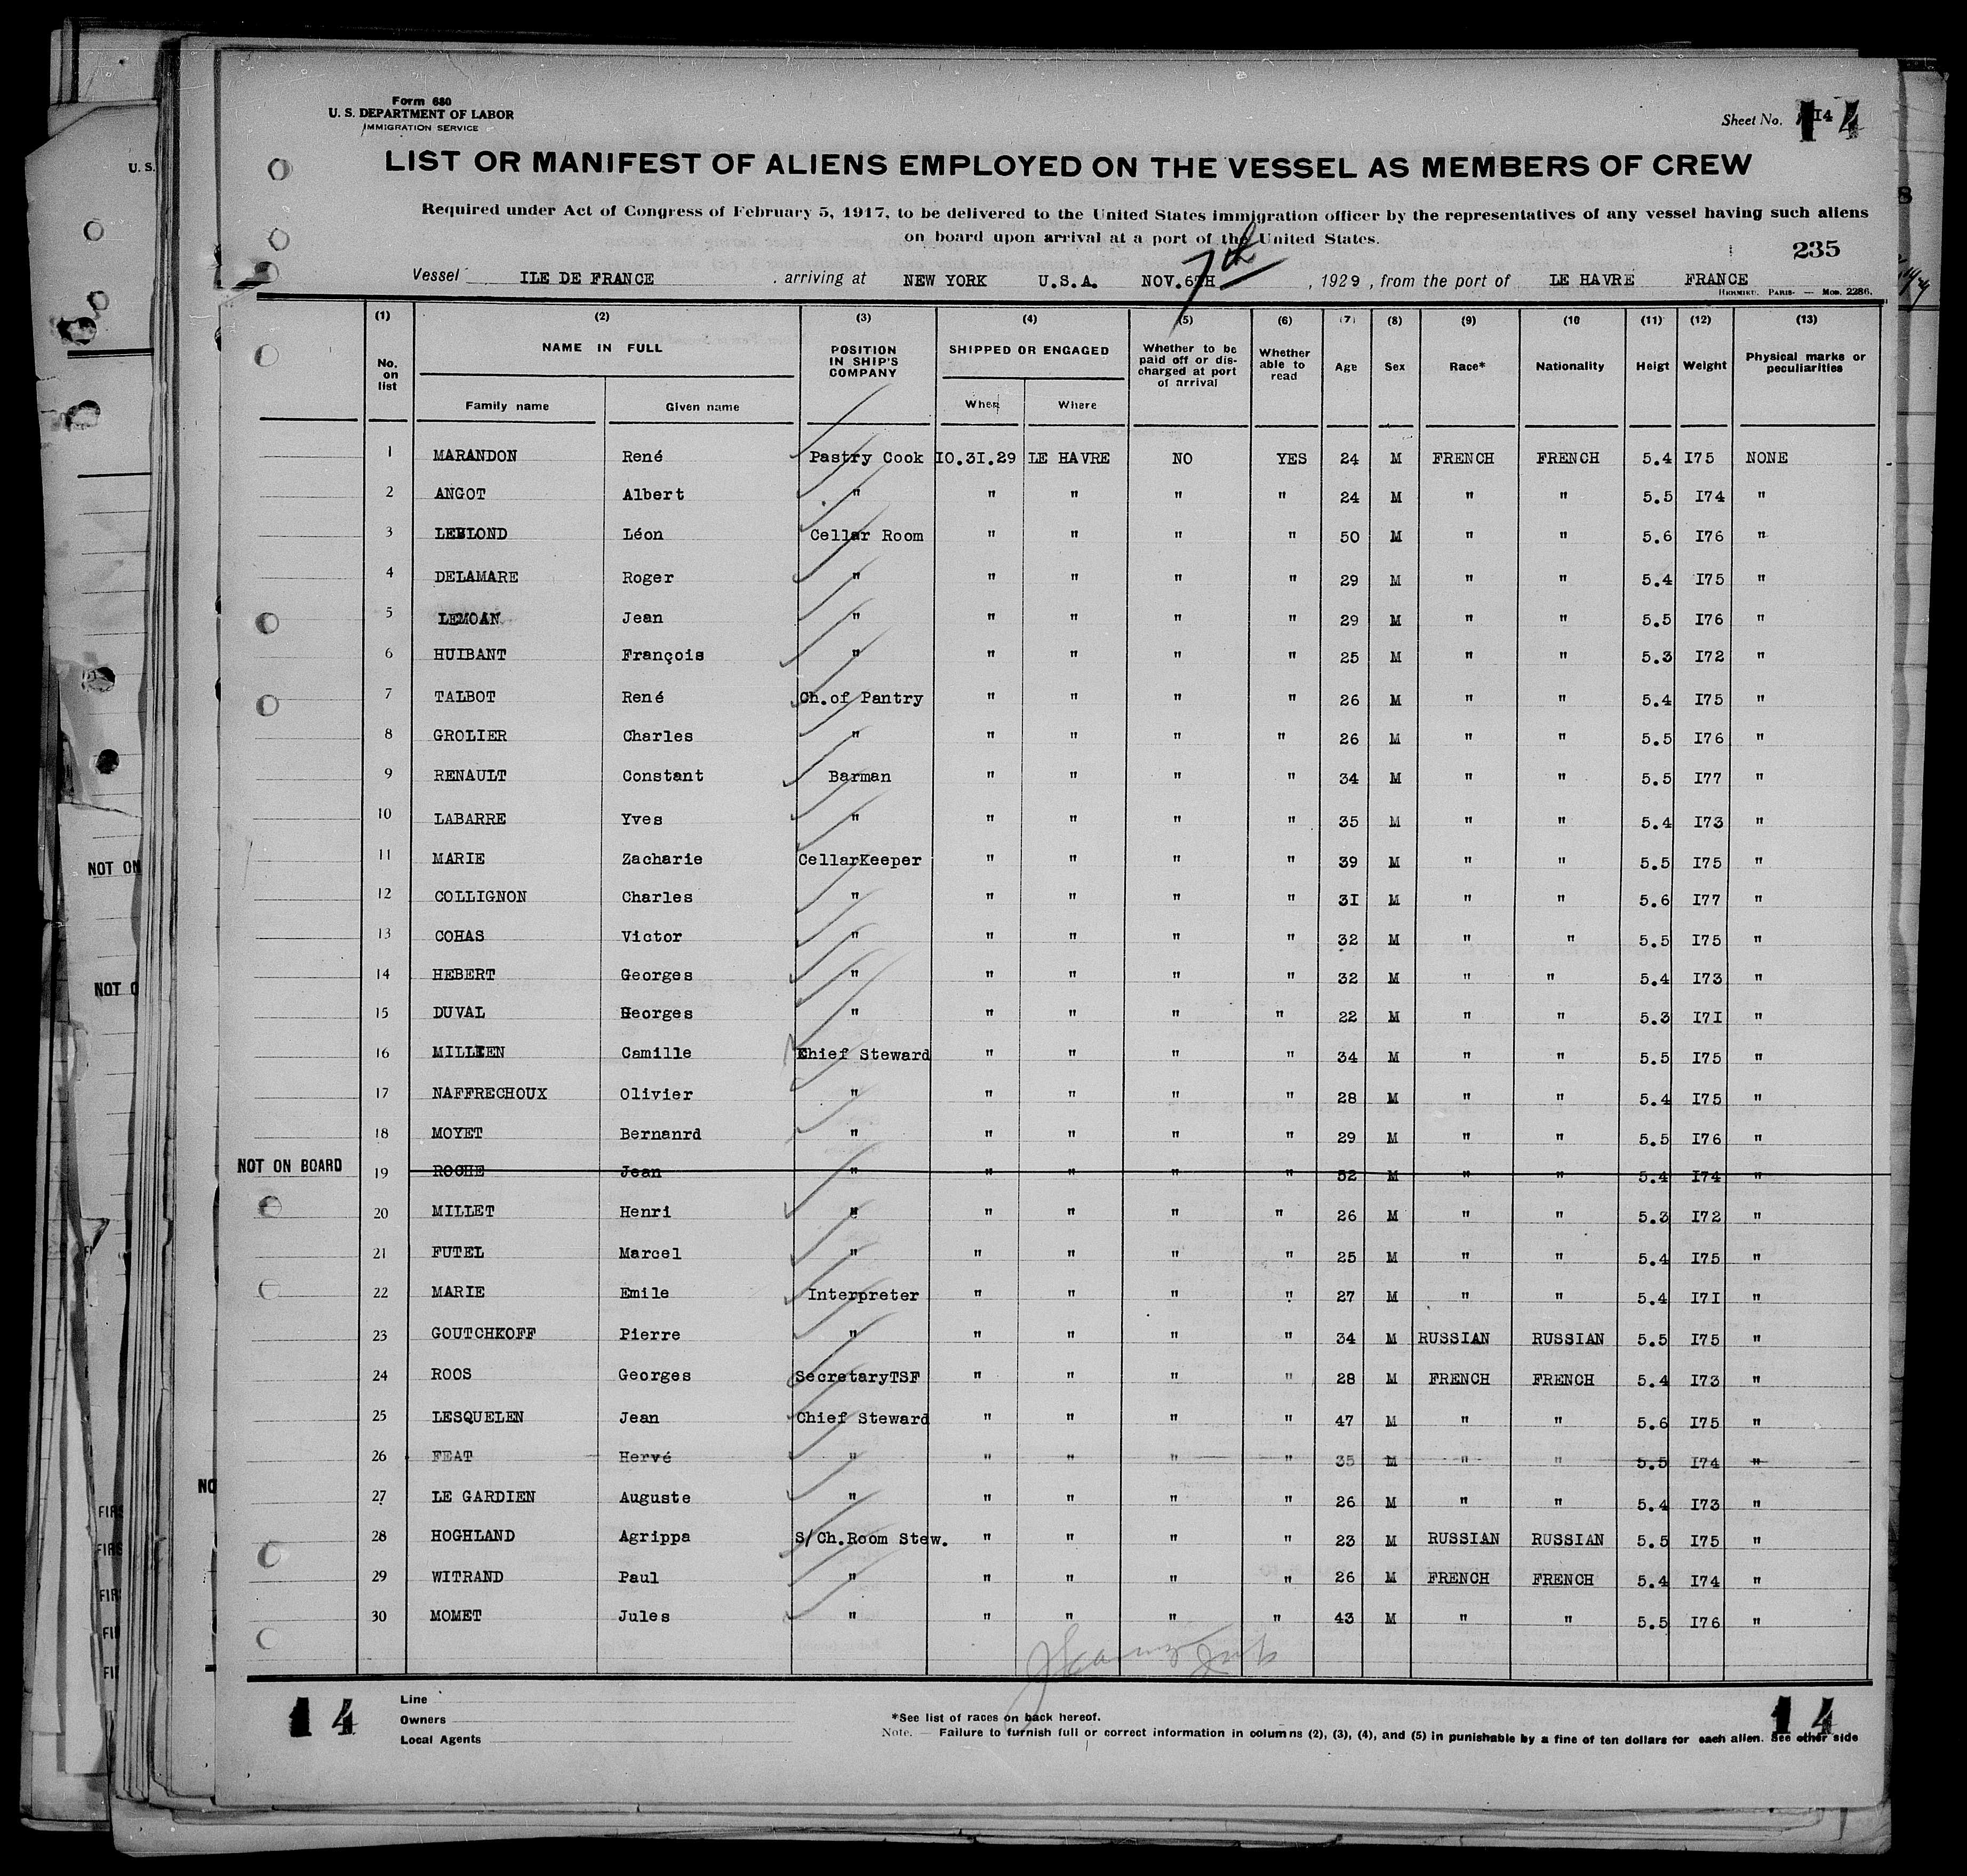 Form 680
U. S. DEPARTMENT OF LABOR
IMMIGRATION SERVICE
Sheet No. 14
LIST OR MANIFEST OF ALIENS EMPLOYED ON THE VESSEL AS MEMBERS OF CREW
Required under Act of Congress of February 5, 1917, to be delivered to the United States immigration officer by the representatives of any vessel having such aliens
on board upon arrival at a port of the United States.
235
Vessel ILE DE FRANCE arriving at NEW YORK U.S.A. NOV.6TH 7th , 1929 , from the port of LE HAVRE FRANCE
HERMIEU. PARIS- — MOD. 2286.
(1) (2) (3) (4) (5) (6) (7) (8) (9) (10 (11) (12) (13)
No. on list NAME IN FULL POSITION IN SHIP'S COMPANY SHIPPED OR ENGAGED Whether to be paid off or discharged at port of arrival Whether able to read Age Sex Race* Nationality Heigt Weight Physical marks or peculiarities
Family name Given name When Where
1 MARANDON René Pastry Cook I0.3I.29 LE HAVRE NO YES 24 M FRENCH FRENCH 5.4 I75 NONE
2 ANGOT Albert " " " " " 24 M " " 5.5 I74 "
3 LEBLOND Léon Cellar Room " " " " 50 M " " 5.6 I76 "
4 DELAMARE Roger " " " " " 29 M " " 5.4 I75 "
5 LEMOAN Jean " " " " " 29 M " " 5.5 I76 "
6 HUIBANT François " " " " " 25 M " " 5.3 I72 "
7 TALBOT René Ch.of Pantry " " " " 26 M " " 5.4 I75 "
8 GROLIER Charles " " " " " 26 M " " 5.5 I76 "
9 RENAULT Constant Barman " " " " 34 M " " 5.5 I77 "
10 LABARRE Yves " " " " " 35 M " " 5.4 I73 "
11 MARIE Zacharie CellarKeeper " " " " 39 M " " 5.5 I75 "
12 COLLIGNON Charles " " " " " 3I M " " 5.6 I77 "
13 COHAS Victor " " " " " 32 M " " 5.5 I75 "
14 HEBERT Georges " " " " " 32 M " " 5.4 I73 "
15 DUVAL Georges " " " " " 22 M " " 5.3 I7I "
16 MILLIEN Camille Chief Steward " " " " 34 M " " 5.5 I75 "
17 NAFFRECHOUX Olivier " " " " " 28 M " " 5.4 I75 "
18 MOYET Bernanrd " " " " " 29 M " " 5.5 I76 "
NOT ON BOARD 19 ROCHE Jean " " " " " 52 M " " 5.4 I74 "
20 MILLET Henri " " " " " 26 M " " 5.3 I72 "
21 FUTEL Marcel " " " " " 25 M " " 5.4 I75 "
22 MARIE Emile Interpreter " " " " 27 M " " 5.4 I7I "
23 GOUTCHKOFF Pierre " " " " " 34 M RUSSIAN RUSSIAN 5.5 I75 "
24 ROOS Georges SecretaryTSF " " " " 28 M FRENCH FRENCH 5.4 I73 "
25 LESQUELEN Jean Chief Steward " " " " 47 M " " 5.6 I75 "
26 FEAT Hervé " " " " " 35 M " " 5.5 I74 "
27 LE GARDIEN Auguste " " " " " 26 M " " 5.4 I73 "
28 HOGHLAND Agrippa S/Ch.Room Stew. " " " " 23 M RUSSIAN RUSSIAN 5.5 I75 "
29 WITRAND Paul " " " " " 26 M FRENCH FRENCH 5.4 I74 "
30 MOMET Jules " " " " " 43 M " " 5.5 I76 "
14 Line 14
Owners
Local Agents
*See list of races on back hereof.
Note. — Failure to furnish full or correct information in columns (2), (3), (4), and (5) in punishable by a fine of ten dollars for each alien. See other side
U. S.
NOT ON
NOT O
NO
FIRS
FIRS
FIR
FI
FI